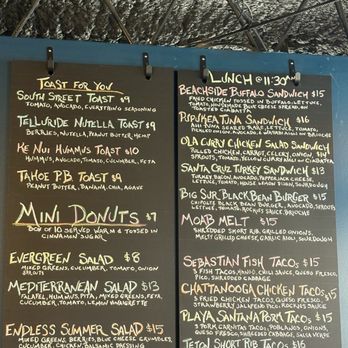 TOAST FOR YOU
SOUTH STREET TOAST $9
TOMATO, AVOCADO, EVERYTHING SEASONING
TELLURIDE NUTELLA TOAST $9
BERRIES, NUTELLA, PEANUT BUTTER, HEMP
KE NUI HUMMUS TOAST $10
HUMMUS, AVOCADO, TOMATO, CUCUMBER, FETA
TAHOE P.B. TOAST $9
PEANUT BUTTER, BANANA, CHIA, AGAVE
MINI DONUTS $7
BOX OF 10 SERVED WARM & TOSSED IN
CINNAMON SUGAR
EVERGREEN SALAD $8
MIXED GREENS, CUCUMBER, TOMATO, ONION
MEDITERRANEAN SALAD $13
FALAFEL, HUMMUS, PITA, MIXED GREENS, FETA
CUCUMBER, TOMATO, LEMON VINAIGRETTE
ENDLESS SUMMER SALAD $15
MIXED GREENS, BERRIES, BLUE CHEESE CRUMBLES,
CUCUMBER, CHICKEN, BALSAMIC DRESSING
LUNCH @ 11:30AM
BEACHSIDE BUFFALO SANDWICH $15
FRIED CHICKEN TOSSED IN BUFFALO, LETTUCE,
TOMATO, HOUSEMADE BLUE CHEESE SPREAD, ON
TOASTED CIABATTA
PIPUKEA TUNA SANDWICH $16
AHI TUNA SEARED RARE, LETTUCE, TOMATO,
PICKLED ONION, AVOCADO & WASABI AIOLI ON BRIOCHE
OLA CURRY CHICKEN SALAD SANDWICH
PULLED CHICKEN, CARROT, CELERY, ONION $14
SPROUTS, TOMATO, YELLOW CURRY MAYO ON CIABATTA
SANTA CRUZ TURKEY SANDWICH $13
TURKEY, BACON, AVOCADO, PEPPERJACK CHEESE,
LETTUCE, TOMATO, HOUSE LEMON AIOLI, SOURDOUGH
BIG SUR BLACK BEAN BURGER $15
CHIPOTLE BLACK BEAN BURGER, AVOCADO, SPROUTS
LETTUCE, TOMATO, ROCKIES SAUCE, BRIOCHE
MOAB MELT $15
SHREDDED SHORT RIB, GRILLED ONIONS,
MELTY GRILLED CHEESE, GARLIC AIOLI, SOURDOUGH
SEBASTIAN FISH TACOS $15
3 FISH TACOS, MANGO, CHILI SAUCE, QUESO FRESCO,
PICO, SHREDDED CABBAGE
CHATTANOOGA CHICKEN TACOS $15
3 FRIED CHICKEN TACOS, QUESO FRESCO,
STRAWBERRY JALAPENO PICO, ROCKIES SAUCE
PLAYA SANTANA PORK TACOS $15
3 PORK CARNITAS TACOS, POBLANOS, ONION,
QUESO FRESCO, SHREDDED CABBAGE, SALSA VERDE
TETON SHORT RIB TACOS $16